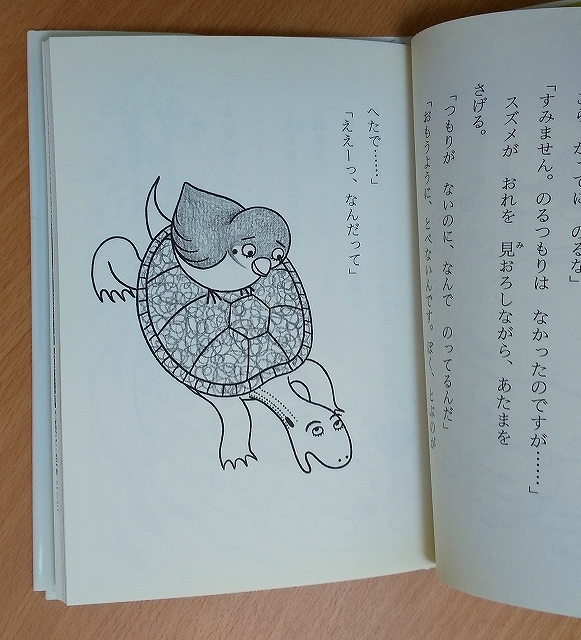 かってに のるな」
「すみません。のるつもりは なかったのですが……」
スズメが おれを 見おろしながら、あたまを
さげる。
「つもりが ないのに、なんで のってるんだ」
「おもうように、とべないんです。ぼく、とぶのが
へたで……」
「ええーっ、なんだって」